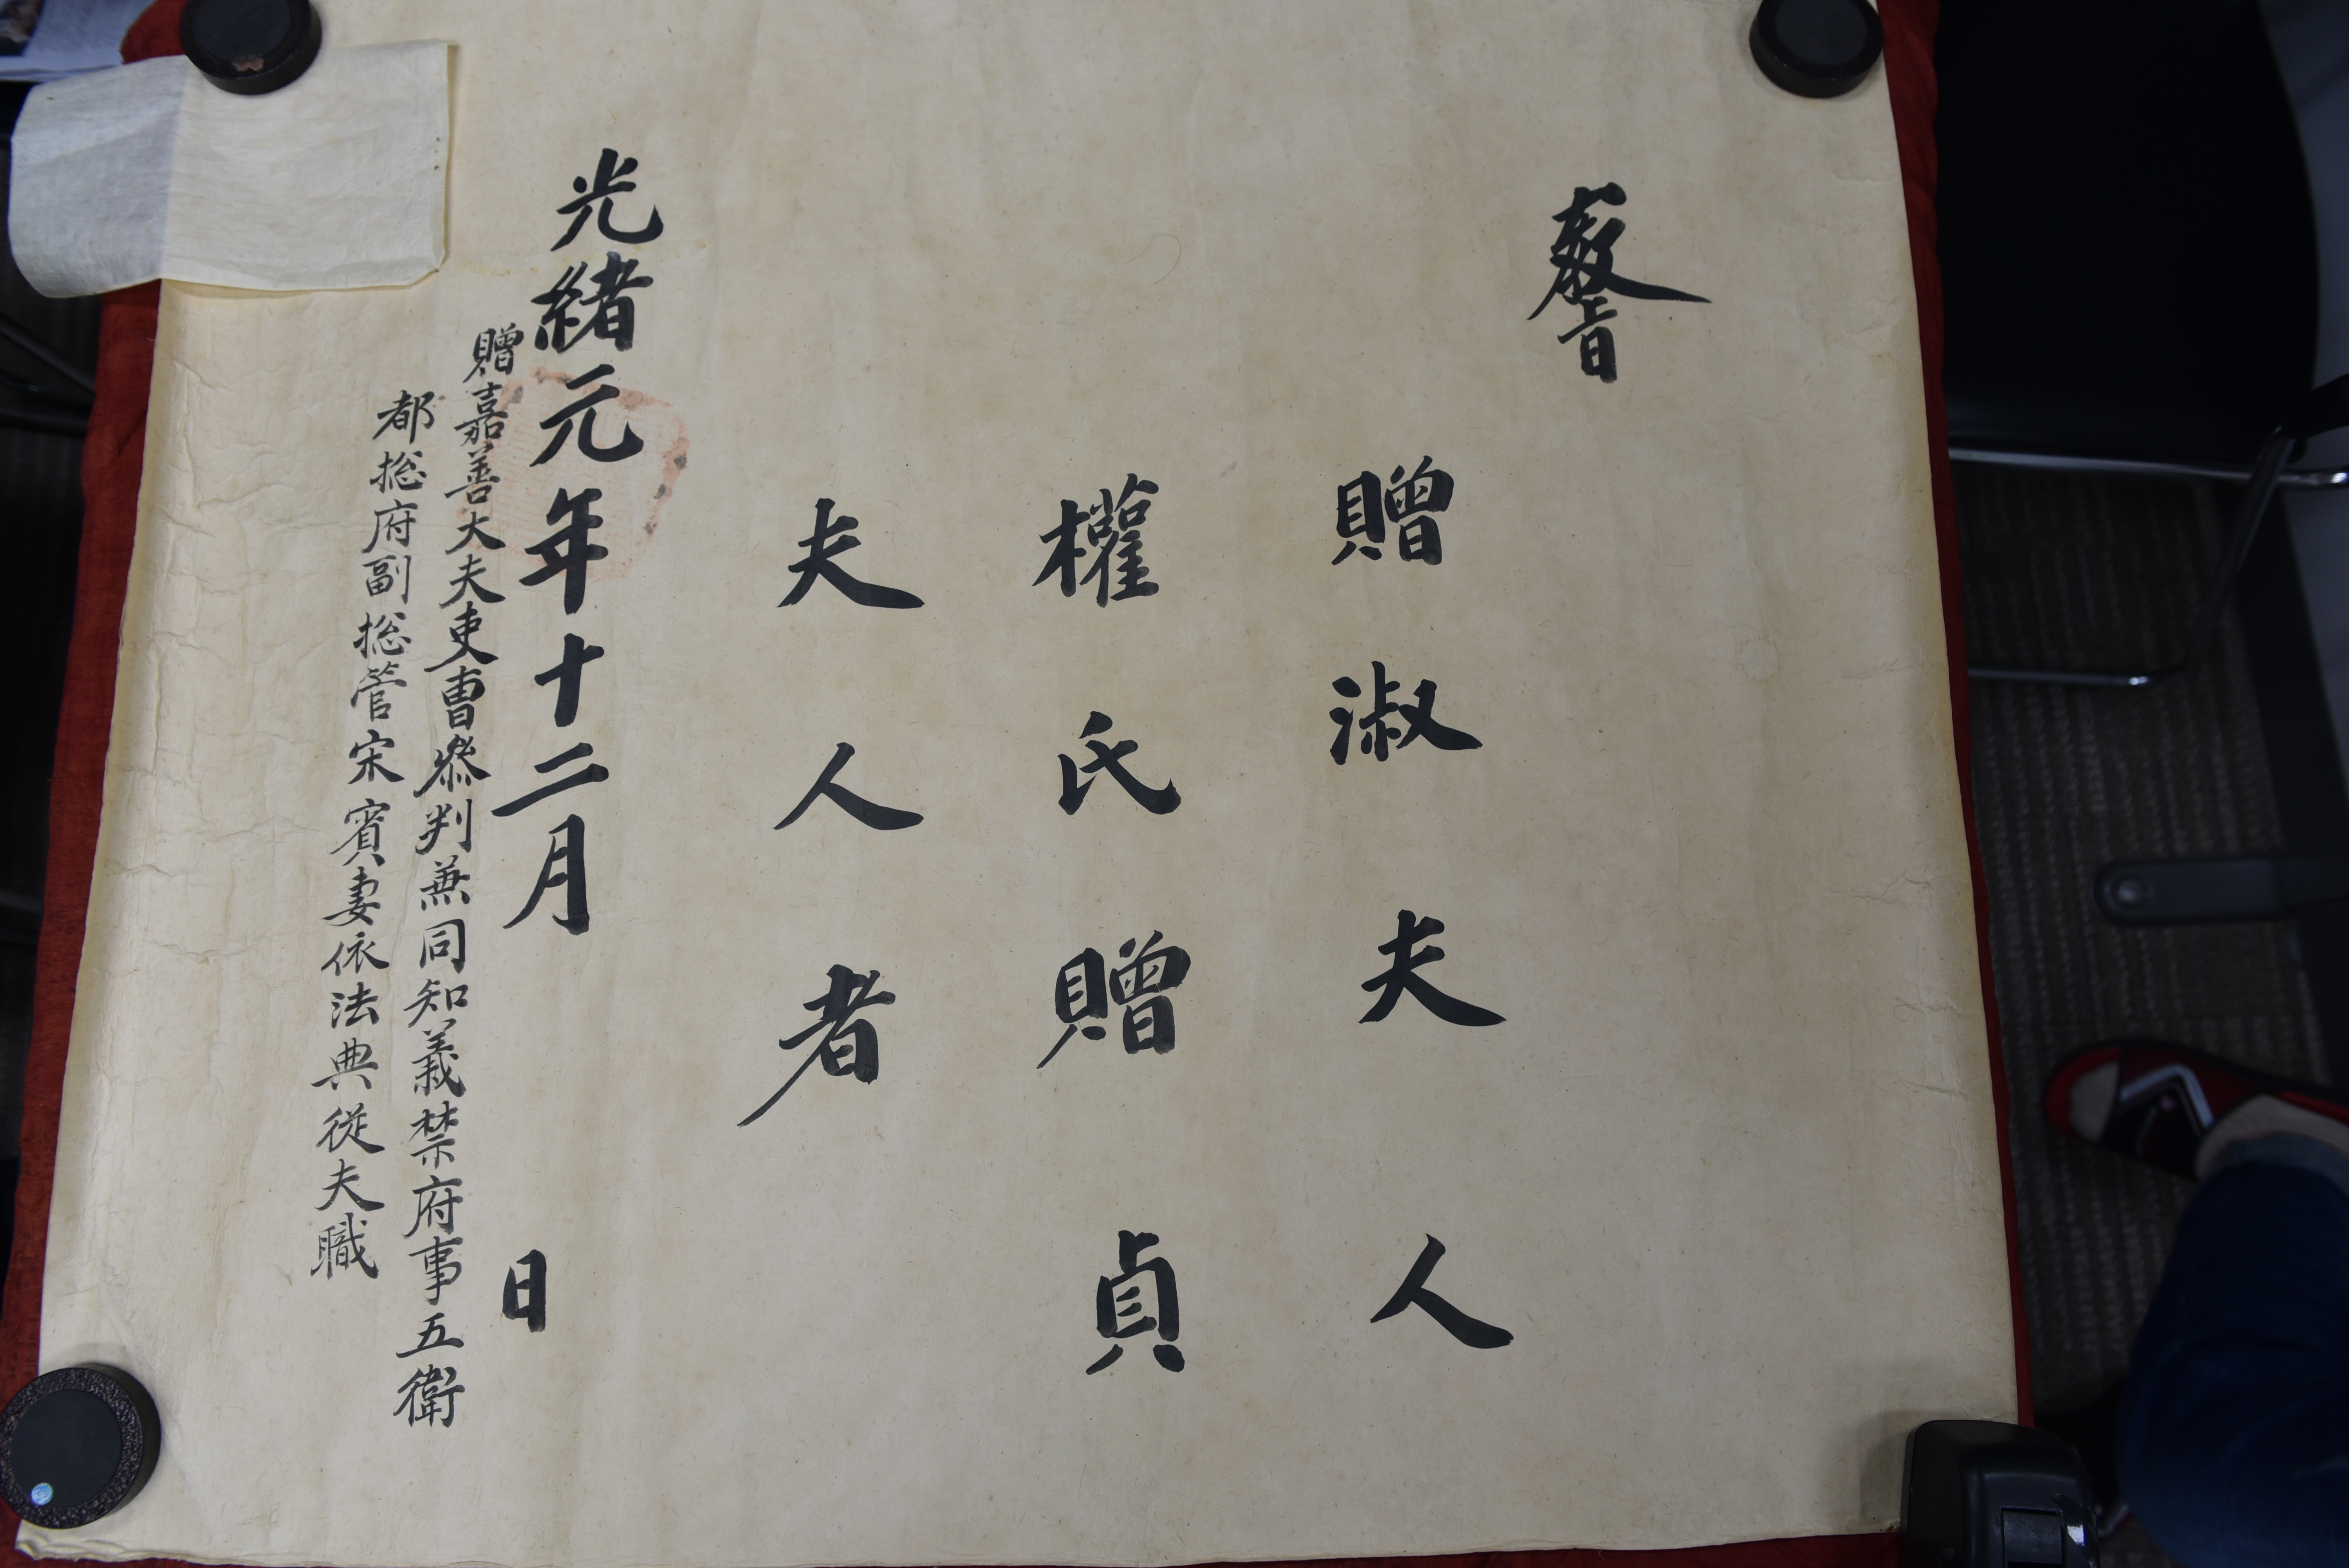 教旨
贈淑夫人
權氏贈貞
夫人者
光緖元年十二月 日
贈嘉善大夫吏曹參判兼同知義禁府事五衛
都摠府副摠管宋賓妻依法典從夫職